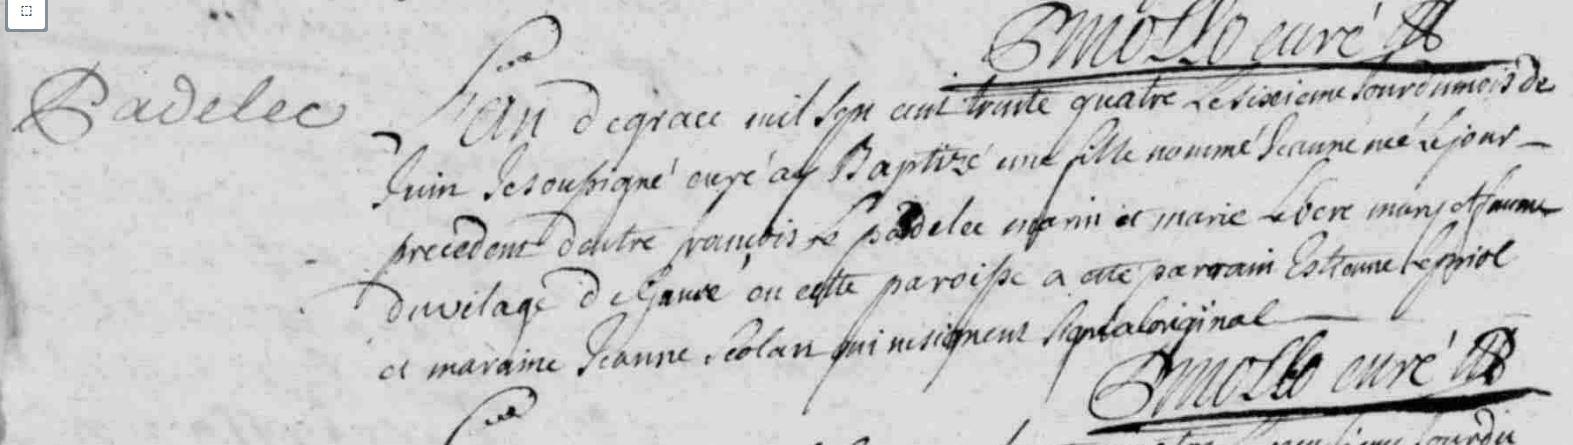 P mollo curé
Padelec
L'an de grace mil sept cent trente quatre Le sixieme Jour du mois de
Juin Je soussigné curé ay Baptizé une fille nommé Jeanne née Le jour
precedent d'entre françois Le padelec marin et marie Le bere mary et femme
du vilage de Gavre en cette paroisse a eté parrain Estienne Le priol
et maraine Jeanne qui ne signent Signé a l'original
P mollo curé